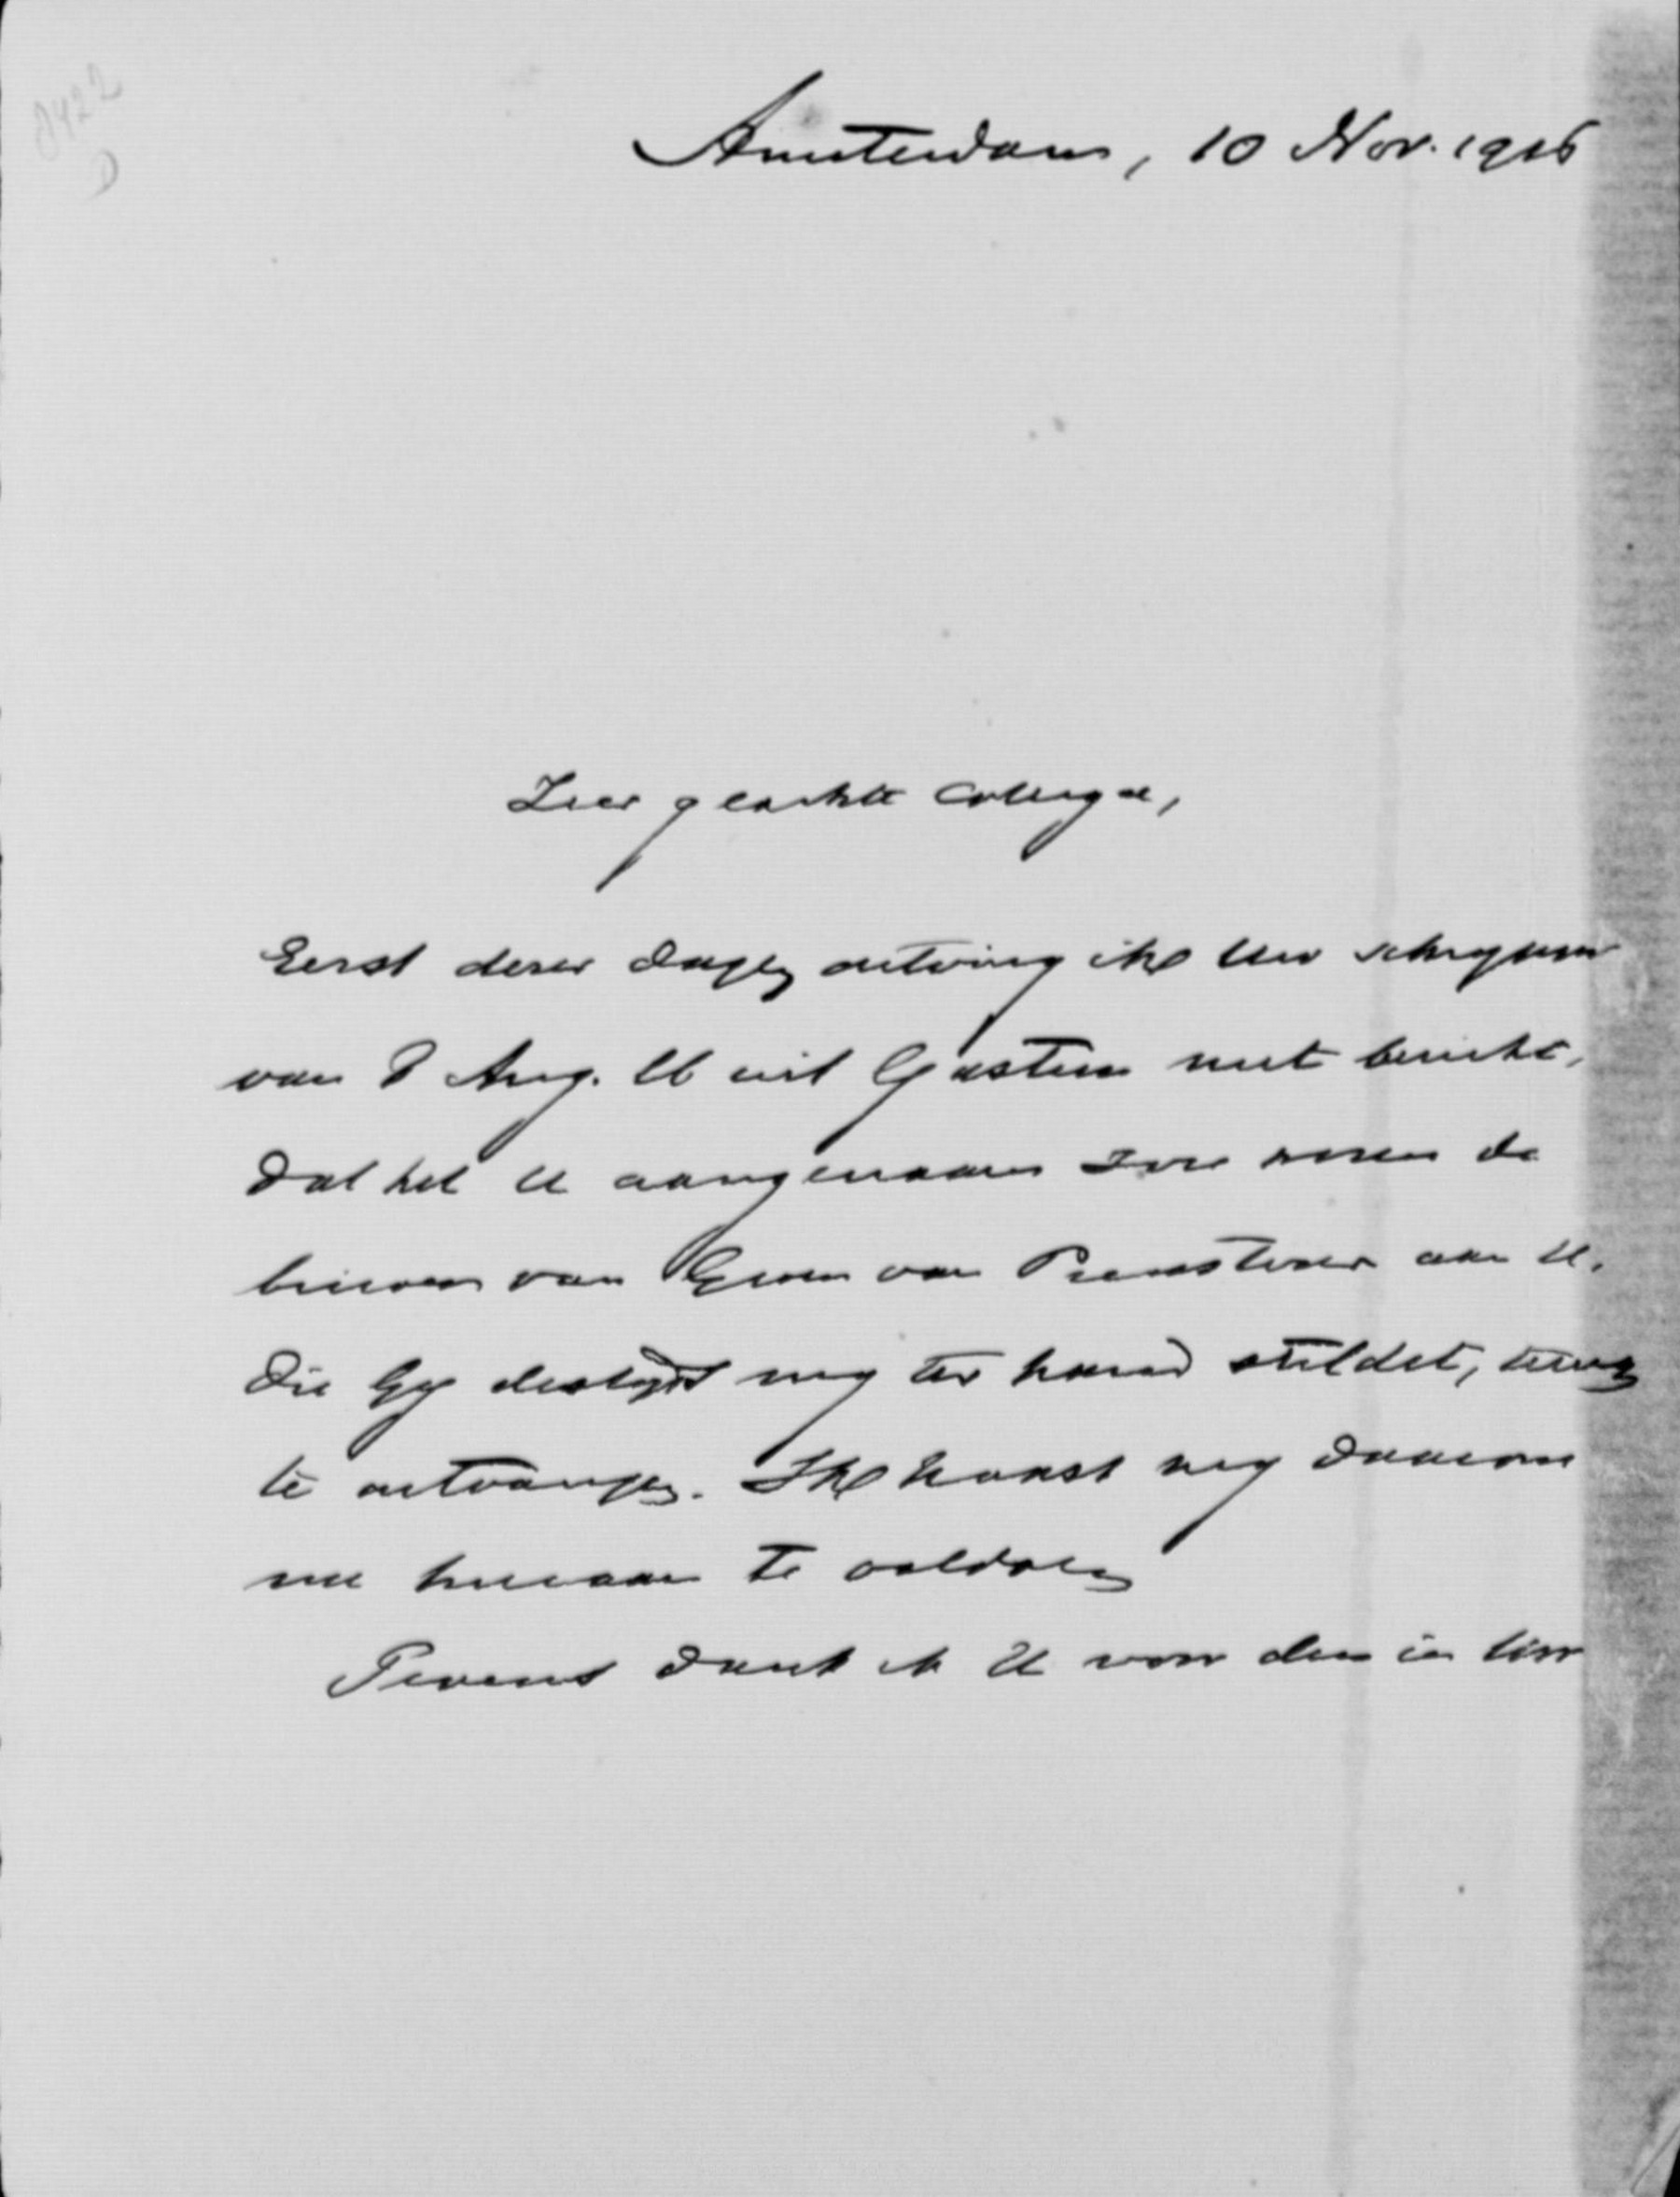 8422
D
Amsterdam, 10 Nov. 1916
Zeer geachte Collega,
Eerst dezer dagen ontving ik Uw schrijven
van 8 Aug. ll uit Gastein met bericht,
dat het U aangenaam zou wezen de
brieven van Groen van Prinsterer aan U.
die Gij destijds mij ter hand steldet, terug
te ontvangen. Ik haast mij daarom
nu hieraan te voldoen
Tevens dank ik U voor den in Uw